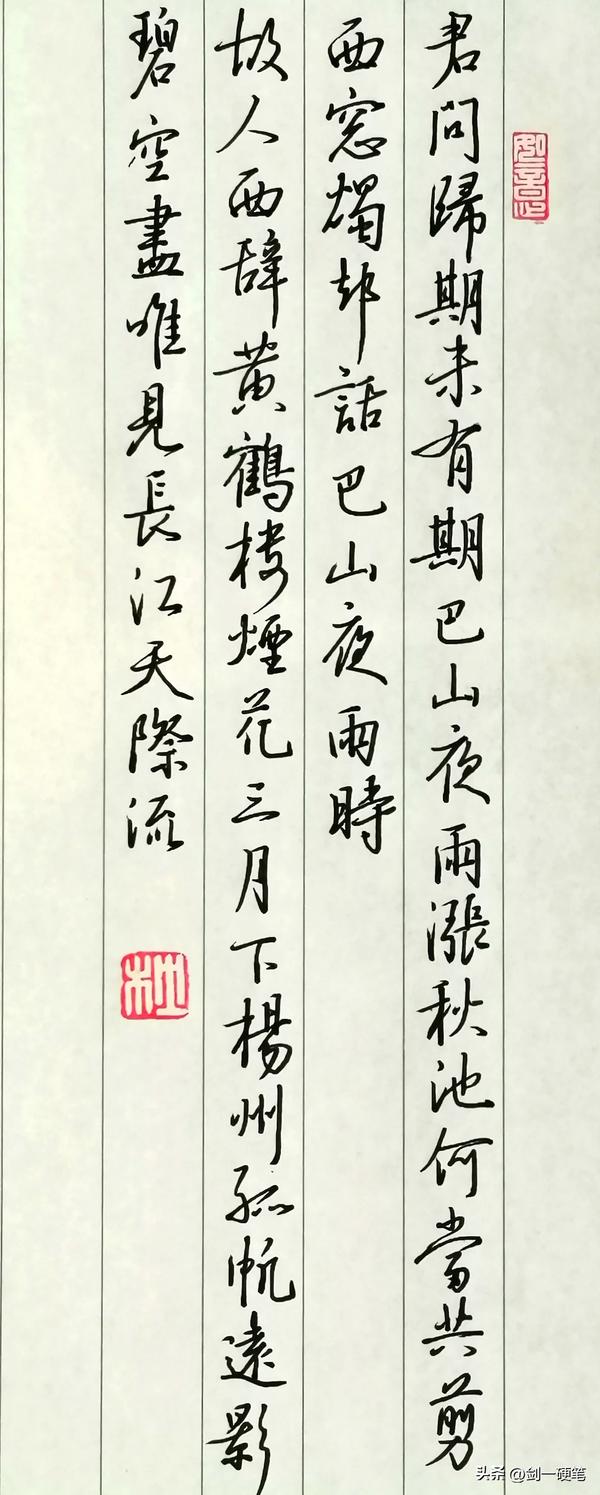 君問歸期未有期巴山夜雨漲秋池何當共剪
西窓燭却話巴山夜雨時
故人西辭黃鶴楼煙花三月下楊州孤帆遠影
碧空盡唯見長江天際流
头条 @剑一硬笔